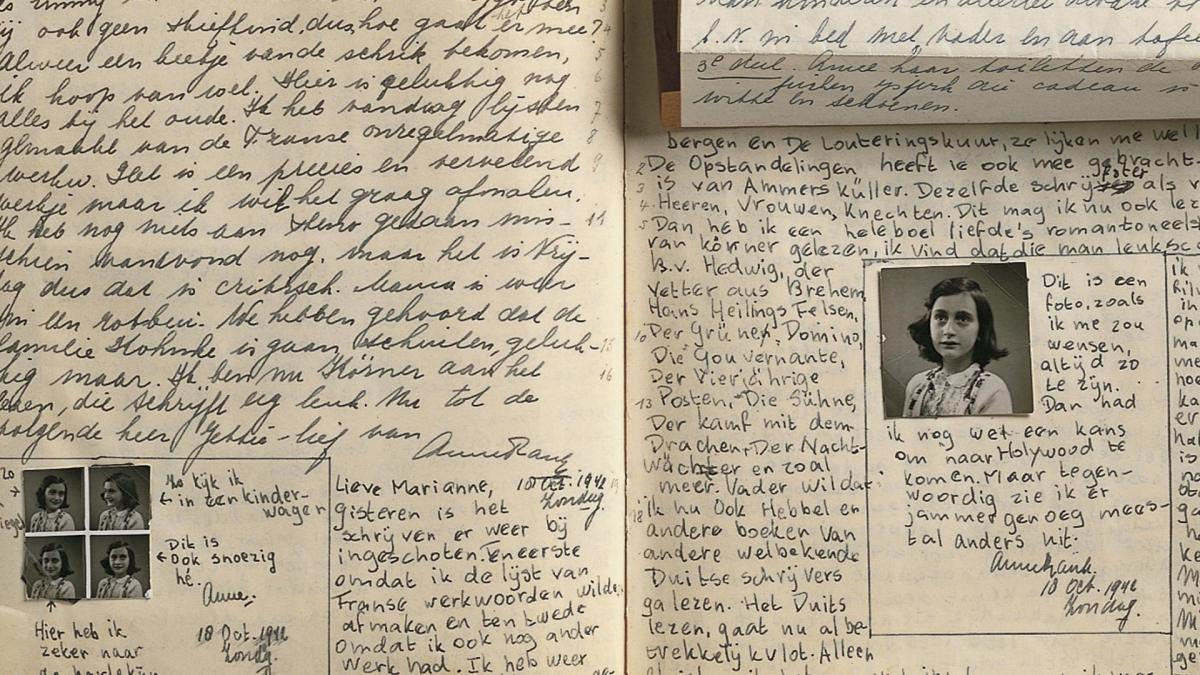 ij ook geen stiefkind, dus hoe gaat het er mee? 4
Alweer een beetje van de schrik bekomen, 5
ik hoop van wel. Hier is gelukkig nog 6
alles bij het oude. Ik heb vandaag lijsten 7
gemaakt van de Franse onregelmatige 8
werkw. Het is een precies en vervelend 9
werkje maar ik wil het graag afmaken.
Ik heb nog niets aan steno gedaan mis- 11
schien vanavond nog, maar het is Vrij-
dag dus dat is critisch. Mama is weer
in een
We hebben gehoord dat de
familie is gaan schuilen, geluk- 15
kig maar. Ik ben nu Körner aan het 16
lezen, die schrijft erg leuk. Nu tot de
volgende keer Jettie-lief van
Anne Frank
Zo kijk ik
in een kinder-
wagen
Dit is
ook snoezig
hé.
Anne.
Hier heb ik
zeker naar
18 Oct. 1942
Zondag.
Lieve Marianne,
Zondag.
gisteren is het
schrijven er weer bij
ingeschoten. Ten eerste
omdat ik de lijst van
Franse werkwoorden wilde
afmaken en ten twede
omdat ik ook nog ander
werk had. Ik heb weer
b.v. in bed met Vader en aan tafel
3e deel. Anne haar toiletten de
cadeau
witte en schoenen.
bergen en De Louteringskuur, ze lijken me wel
2 De Opstandelingen heeft ie ook mee gebracht
3 is van Ammers Küller. Dezelfde schrijfster als v
4 Heeren, Vrouwen, Knechten. Dit mag ik nu ook lez
5 Dan heb ik een heleboel liefde's romantoneels
van körner gelezen, ik vind dat die man leuk sc
B.v. Hedwig, der
Vetter aus Brehem
Hans Heilings Felsen,
10 Der Grünen, Domino,
Die Gouvernante,
Der Vierjährige
13 Posten, Die Sühne,
Der kamf mit dem
Drachen, Der Nacht-
wächter en zoal
meer. Vader wil dat
18 ik nu ook Hebbel en
andere boeken van
andere welbekende
Duitse schrijvers
ga lezen. Het Duits
lezen, gaat nu al be-
trekkelijk vlot. Alleen
Dit is een
foto, zoals
ik me zou
wensen,
altijd zo
te zijn.
Dan had
ik nog wel een kans
om naar Holywood te
komen. Maar tegen-
woordig zie ik er
jammer genoeg mees-
tal anders uit.
Anne Frank.
18 Oct. 1942
Zondag.